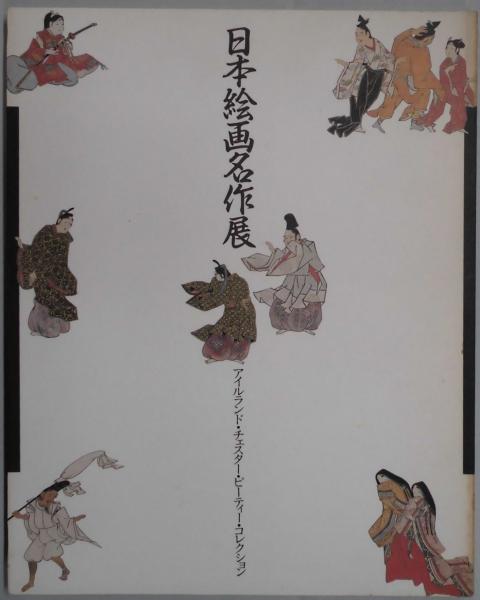 日本絵画名作展
アイルランド・チェスター・ビーティー・コレクション